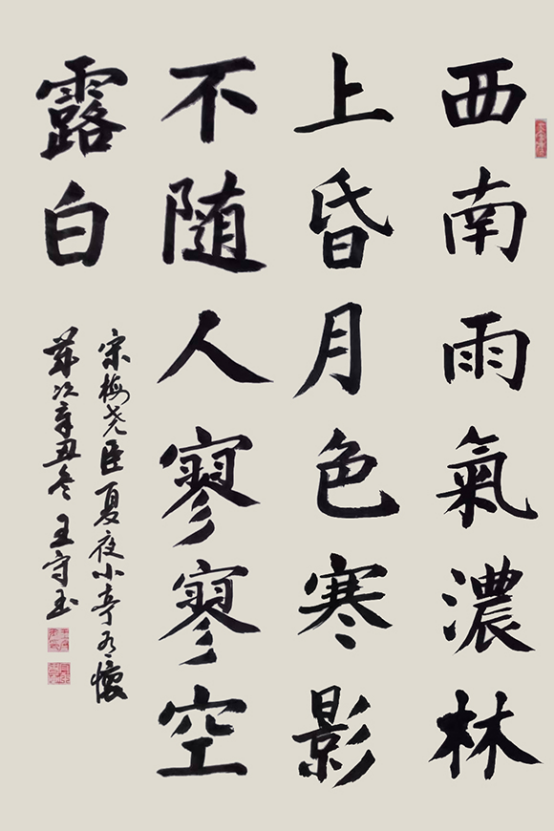 西南雨氣濃林
上昏月色寒影
不随人寥寥空
露白
宋梅尧臣夏夜小亭有懷
歲次辛丑冬王守玉